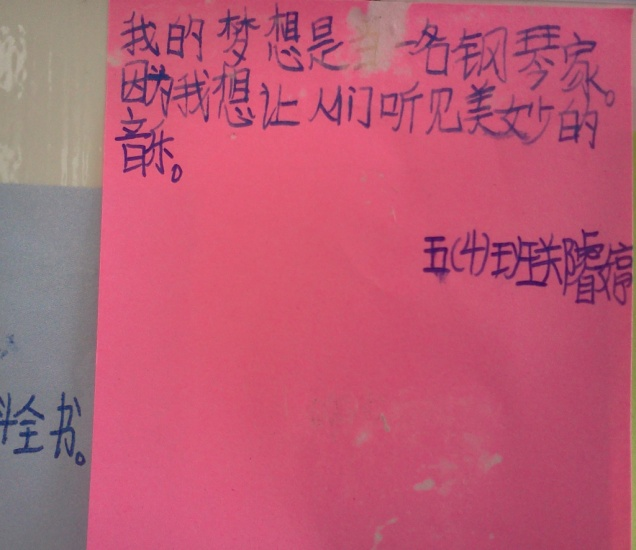 我的梦想是当一名钢琴家。
因为我想让人们听见美妙的
音乐。
五(4)班关睿婷
全书。